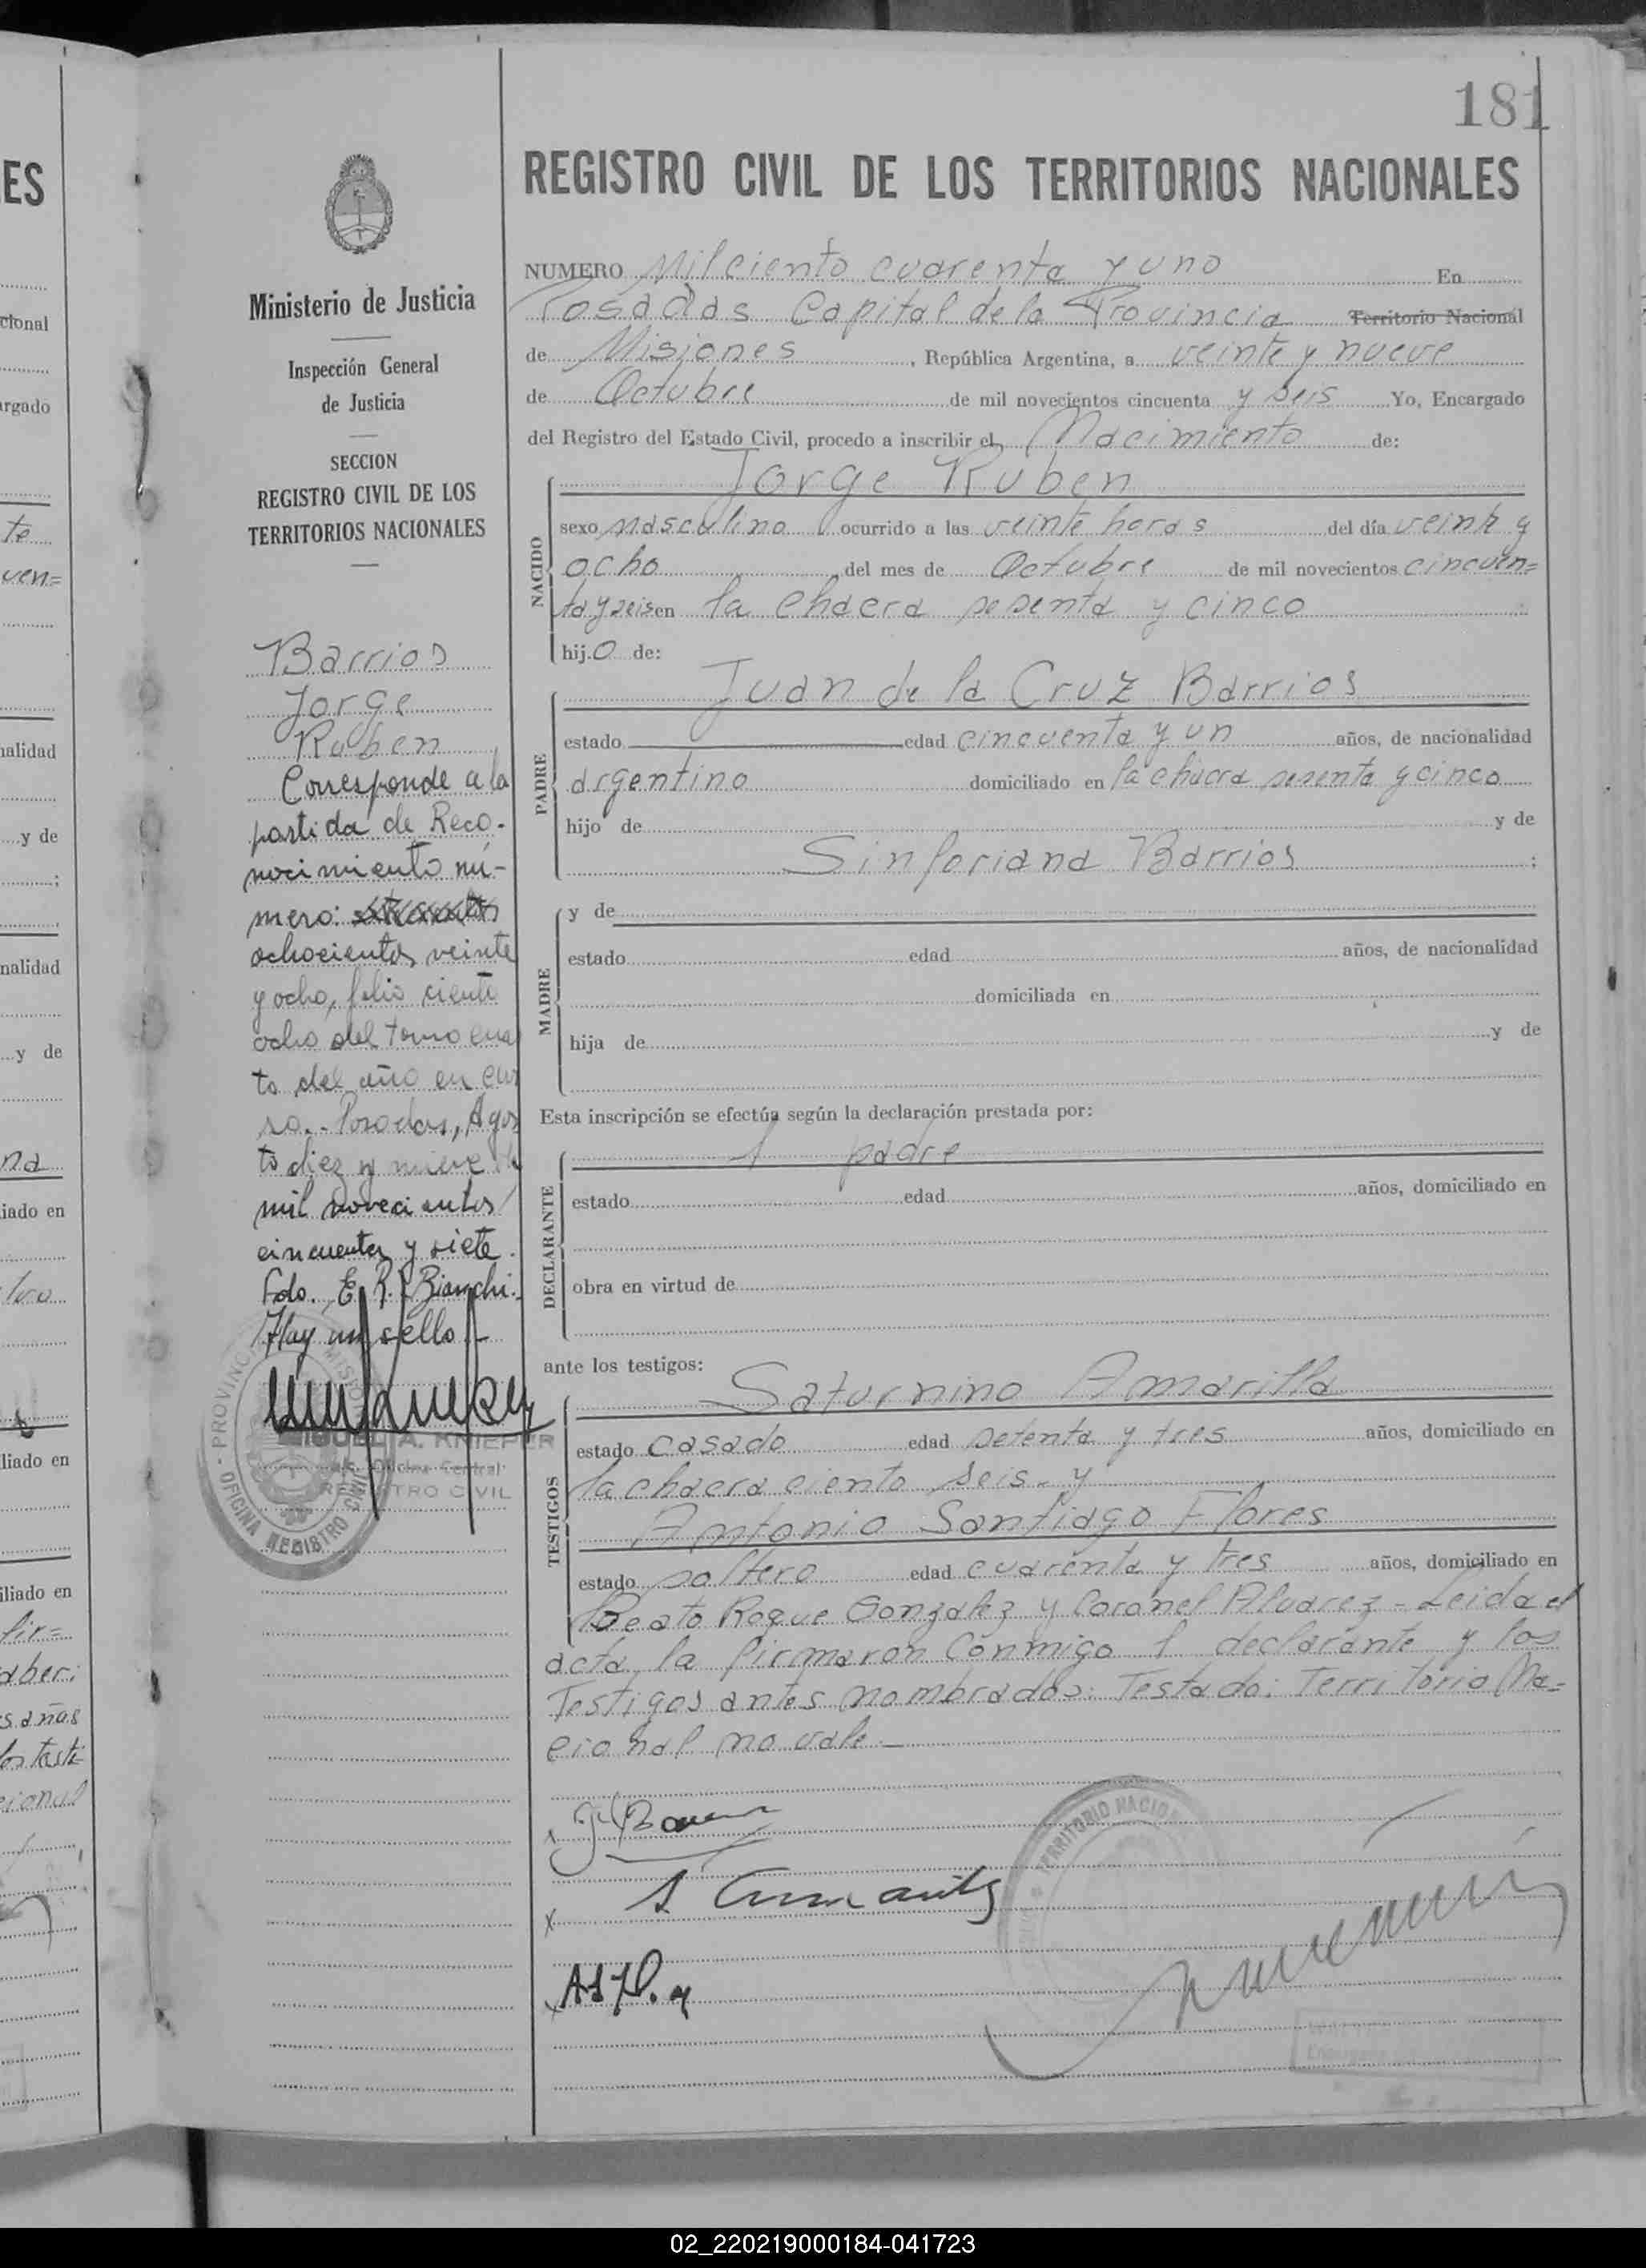 181
REGISTRO CIVIL DE LOS TERRITORIOS NACIONALES
Ministerio de Justicia
Inspección General
de Justicia
SECCION
REGISTRO CIVIL DE LOS
TERRITORIOS NACIONALES
Barrios
Jorge
Ruben
Corresponde a la
partida de Reco-
nocimiento nú-
mero:
ochocientos veinte
y ocho, folio ciento
ocho del tomo cua
to del año en cur
so.- Posadas, Agos
to diez y nueve de
mil novecientos
cincuenta y siete.
Fdo. E. R. Bianchi.
Hay un sello.-
MIGUEL A. KNIEPER
Oficina Central
REGISTRO CIVIL
NUMERO Milciento cuarenta y uno En
Posadas Capital de la Provincia Territorio Nacional
de Misiones, República Argentina, a veinte y nueve
de Octubre de mil novecientos cincuenta y seis Yo, Encargado
del Registro del Estado Civil, procedo a inscribir el Nacimiento de:
NACIDO
Jorge Ruben
sexo masculino ocurrido a las veinte horas del día veinte y
ocho del mes de Octubre de mil novecientos cincuen=
ta y seis en la chacra sesenta y cinco
hijo de:
PADRE
Juan de la Cruz Barrios
estado edad cincuenta y un años, de nacionalidad
argentino domiciliado en la chacra sesenta y cinco
hijo de y de
Sinforiana Barrios ;
MADRE
y de
estado edad años, de nacionalidad
domiciliada en
hija de y de
Esta inscripción se efectúa según la declaración prestada por:
DECLARANTE
l padre
estado edad años, domiciliado en
obra en virtud de
ante los testigos:
TESTIGOS
Saturnino Amarilla
estado casado edad setenta y tres años, domiciliado en
la chacra ciento seis- y
Antonio Santiago Flores
estado soltero edad cuarenta y tres años, domiciliado en
Beato Roque Gonzalez y Coronel Alvarez - Leida el
acta, la firmaron conmigo l declarante y los
Testigos antes nombrados: Testado: Territorio Na=
cional no vale.-
02_220219000184-041723